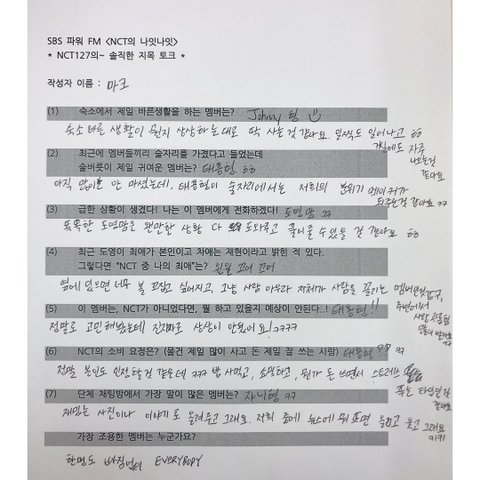 SBS 파워 FM <NCT의 나잇나잇>
* NCT127의~ 솔직한 지목 토크 *
작성자 이름 : 마크
(1) 숙소에서 제일 바른생활을 하는 멤버는? Johnny 형
숙소 생활이 뭔지 상상하는대로 딱 사는것 같아요 일찍도 일어나고
거실에도 자주
나오는것
같아요
(2) 최근에 멤버들끼리 술자리를 가졌다고 들었는데
술버릇이 제일 귀여운 멤버는? 태용형 ㅎㅎ
아직 많이는 안 마셨는데, 태용형이 술자리에서는 저희의 분위기 메이커가
되주는것 같아요 ㅋㅋ
(3) 급한 상황이 생겼다! 나는 이 멤버에게 전화하겠다! 도영맘 ㅋㅋ
똑똑한 도영맘은 웬만한 상황 다 도와주고 풀어줄 수 있을 것 같아요 ㅎㅎ
(4) 최근 도영이 최애가 본인이고 차애는 재현이라고 밝힌 적 있다.
그렇다면 "NCT 중 나의 최애"는?
옆에 있으면 너무 볼 꼬집고 싶어지고, 그냥 사람 아우라 자체가 사람을 끌리는
(5) 이 멤버는, NCT가 아니었다면, 뭘 하고 있을지 예상이 안된다..! 태용형!!
정말로 고민해봤는데 진짜로 상상이 안됬어요!ㅋㅋㅋㅋ
(6) NCT의 소비 요정은? (물건 제일 많이 사고 돈 제일 잘 쓰는 사람) 태용형?? ㅋㅋ
정말 본인도 인정할것 같은데 ㅋㅋㅋ 밥 사먹고, 쇼핑하고, 뭔가 돈 쓰면서 스트레스
푸는 타입인것
같아요
(7) 단체 채팅방에서 가장 말이 많은 멤버는? 쟈니형 ㅋㅋ
재밌는 사진이나 이야기도 올려주고 그래요. 저희 중에 뉴스에 뭐 뜨면 올리고 웃고 그래요
키키
가장 조용한 멤버는 누군가요?
한명도 빠짐없이 EVERYBODY